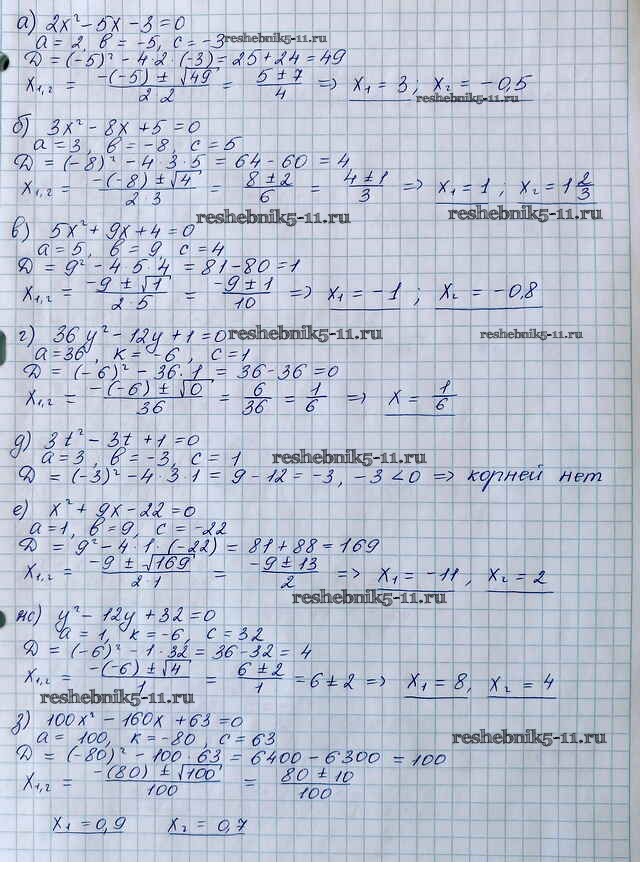 а) 2x² - 5x - 3 = 0
a = 2, в = -5, c = -3 reshebnik5-11.ru
D = (-5)² - 4·2·(-3) = 25 + 24 = 49
x₁,₂ = (-(-5) ± √49)/(2·2) = (5 ± 7)/4 => x₁ = 3; x₂ = -0,5
reshebnik5-11.ru
б) 3x² - 8x + 5 = 0
a = 3, в = -8, c = 5
D = (-8)² - 4·3·5 = 64 - 60 = 4
x₁,₂ = (-(-8) ± √4)/(2·3) = (8 ± 2)/6 = (4 ± 1)/3 => x₁ = 1; x₂ = 1 2/3
reshebnik5-11.ru reshebnik5-11.ru
в) 5x² + 9x + 4 = 0
a = 5, в = 9, c = 4
D = 9² - 4·5·4 = 81 - 80 = 1
x₁,₂ = (-9 ± √1)/(2·5) = (-9 ± 1)/10 => x₁ = -1; x₂ = -0,8
г) 36y² - 12y + 1 = 0 reshebnik5-11.ru reshebnik5-11.ru
a = 36, к = -6, c = 1
D = (-6)² - 36·1 = 36 - 36 = 0
x₁,₂ = (-(-6) ± √0)/36 = 6/36 = 1/6 => x = 1/6
д) 3t² - 3t + 1 = 0
a = 3, в = -3, c = 1 reshebnik5-11.ru
D = (-3)² - 4·3·1 = 9 - 12 = -3, -3 < 0 => корней нет
е) x² + 9x - 22 = 0
a = 1, в = 9, c = -22
D = 9² - 4·1·(-22) = 81 + 88 = 169
x₁,₂ = (-9 ± √169)/(2·1) = (-9 ± 13)/2 => x₁ = -11, x₂ = 2
reshebnik5-11.ru
ж) y² - 12y + 32 = 0
a = 1, к = -6, c = 32
D = (-6)² - 1·32 = 36 - 32 = 4
x₁,₂ = (-(-6) ± √4)/1 = (6 ± 2)/1 = 6 ± 2 => x₁ = 8, x₂ = 4
reshebnik5-11.ru
з) 100x² - 160x + 63 = 0
a = 100, к = -80, c = 63 reshebnik5-11.ru
D = (-80)² - 100·63 = 6400 - 6300 = 100
x₁,₂ = (-(80) ± √100)/100 = (80 ± 10)/100
x₁ = 0,9 x₂ = 0,7
reshebnik5-11.ru